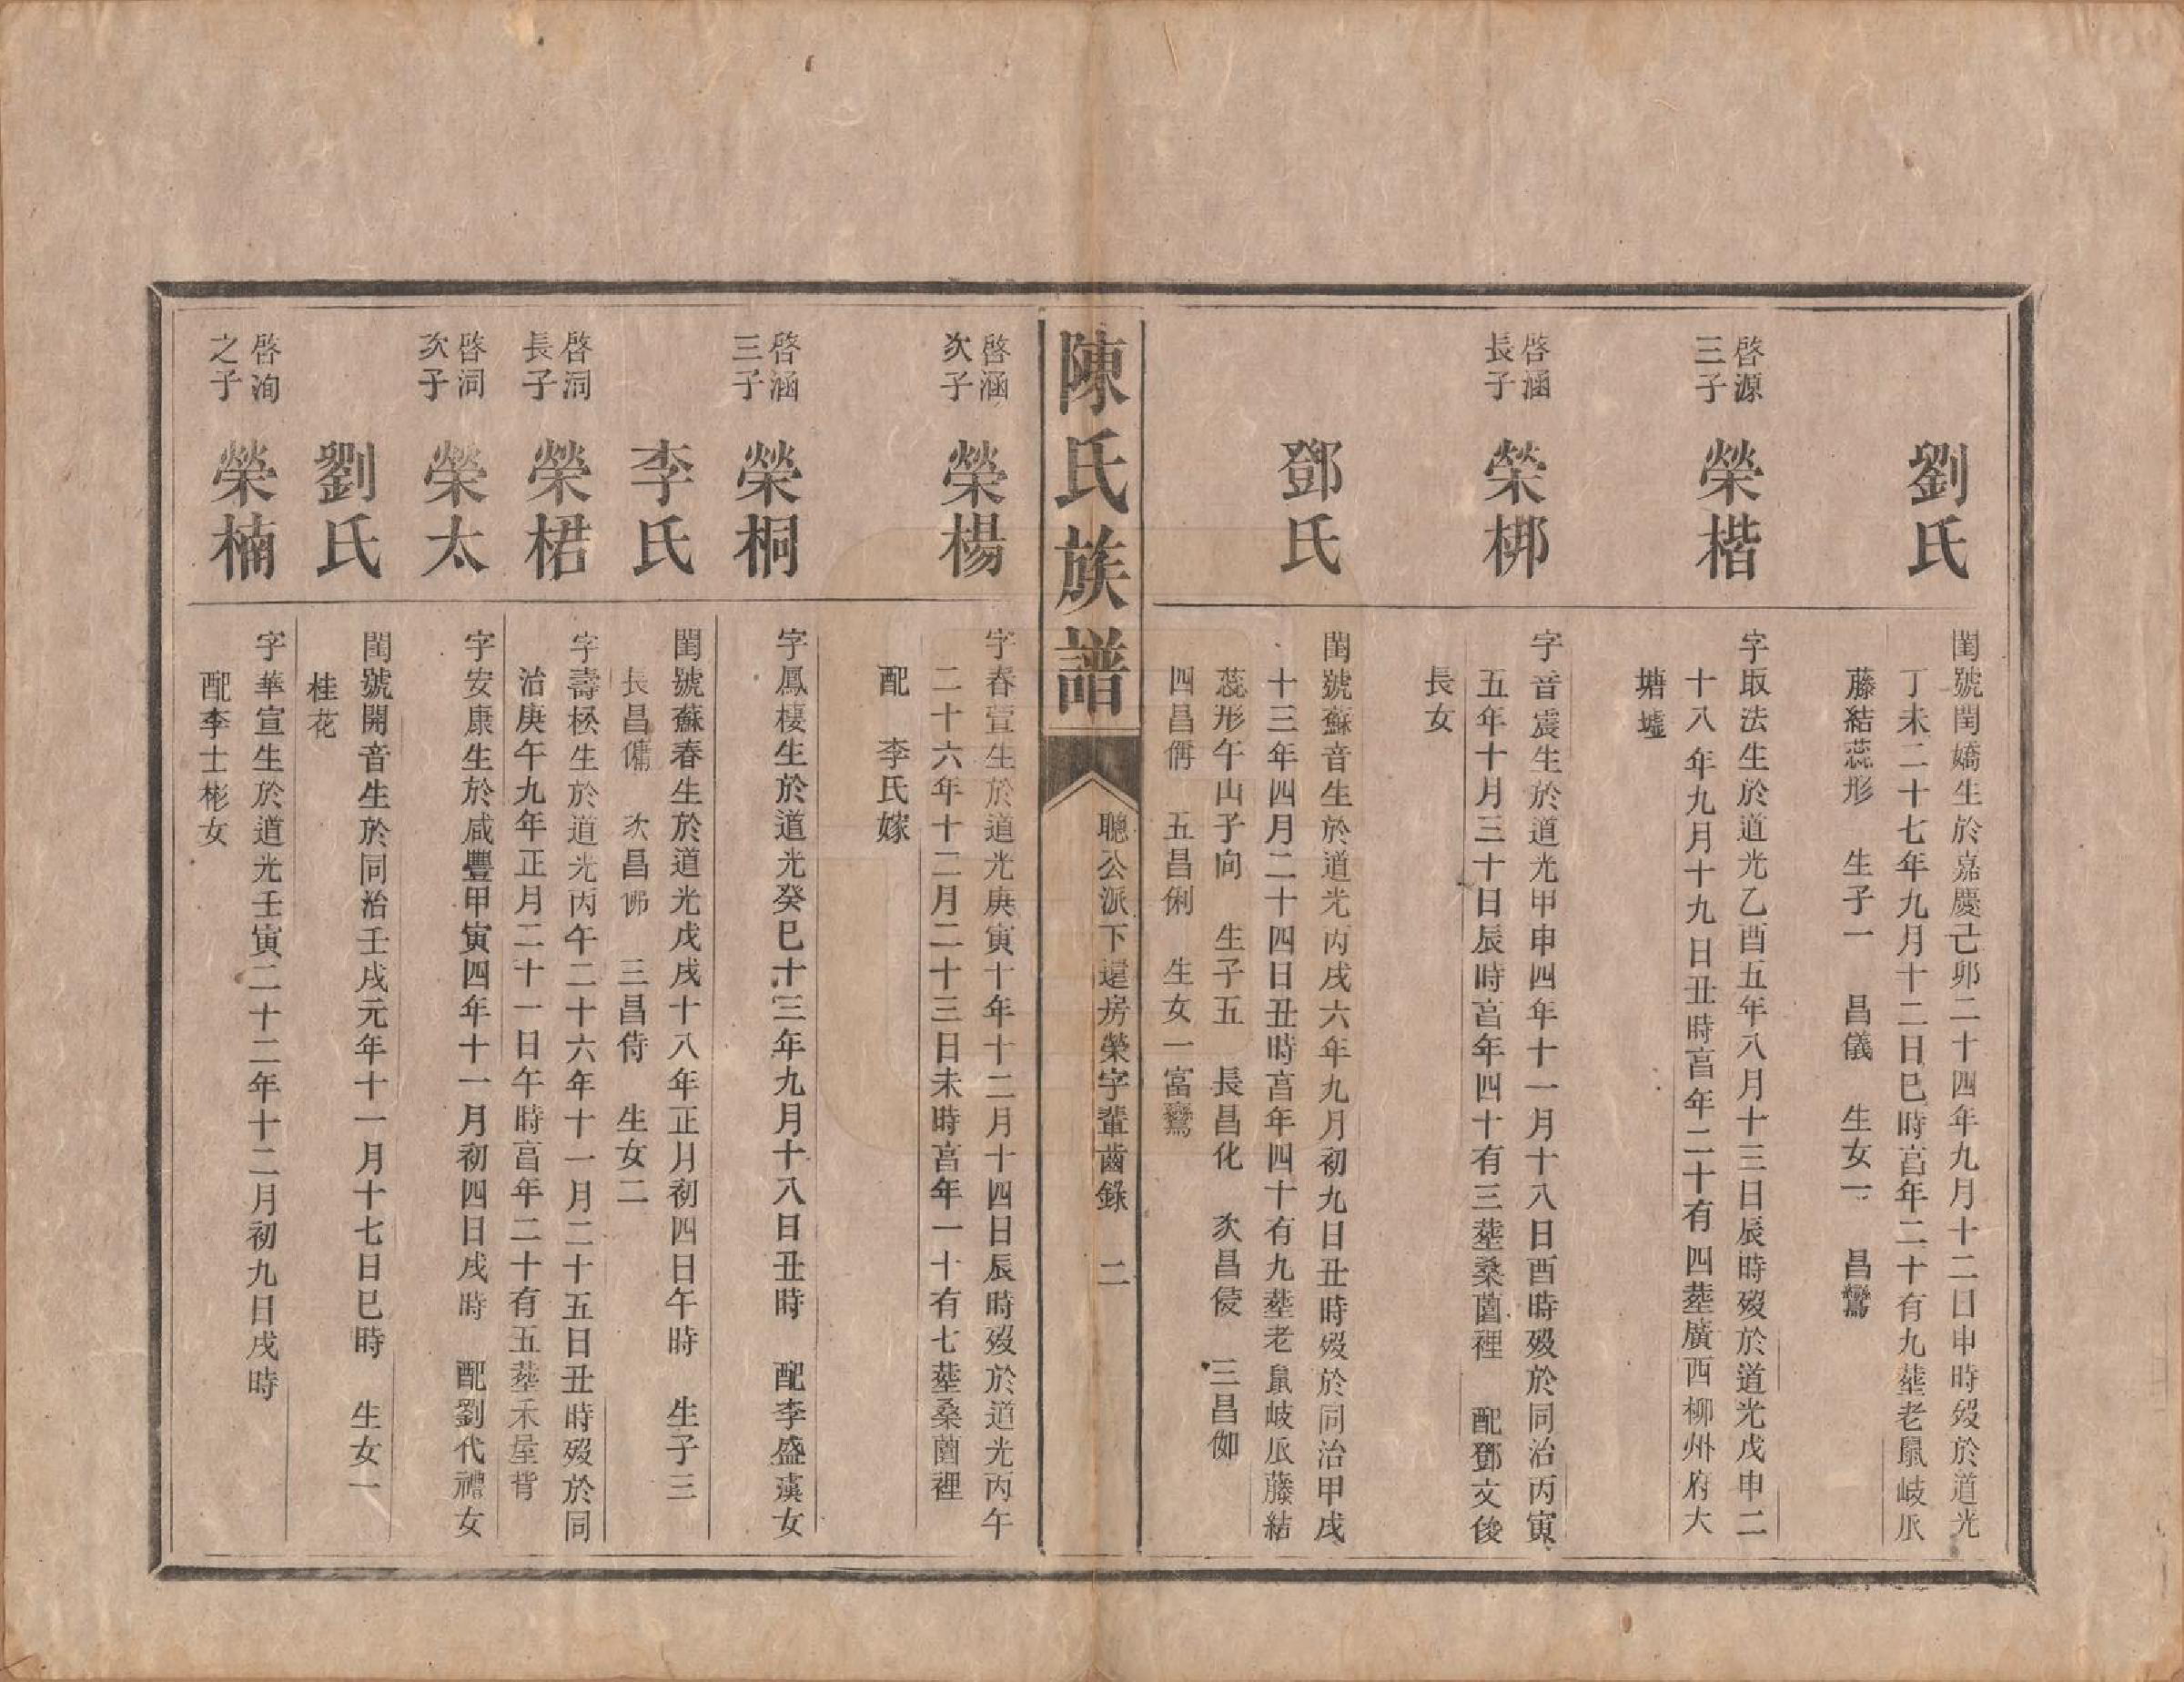 劉氏
閨號閏嬌生於嘉慶己卯二十四年九月十二日申時歿於道光
丁未二十七年九月十二日巳時亯年二十有九塟老鼠岐𠂢
藤結蕊形　生子一　昌儀　生女一　昌鸞
啓源
三子
榮楷
字取法生於道光乙酉五年八月十三日辰時歿於道光戊申二
十八年九月十九日丑時亯年二十有四塟廣西柳州府大
塘墟
啓涵
長子
榮梆
字音震生於道光甲申四年十一月十八日酉時歿於同治丙寅
五年十月三十日辰時亯年四十有三塟桑薗裡　配鄧文俊
長女
鄧氏
閨號蘇音生於道光丙戌六年九月初九日丑時歿於同治甲戌
十三年四月二十四日丑時亯年四十有九塟老鼠岐𠂢藤結
蕊形午山子向　生子五　長昌化　次昌侵　三昌
四昌偁　五昌俐　生女一富鸞
陳氏族譜
聰公派下還房榮字輩齒錄　二
啓涵
次子
榮楊
字春萱生於道光庚寅十年十二月十四日辰時歿於道光丙午
二十六年十二月二十三日未時亯年一十有七塟桑薗裡
配　李氏嫁
啓涵
三子
榮桐
字鳳棲生於道光癸巳十三年九月十八日丑時　配李盛澫女
李氏
閨號蘇春生於道光戊戌十八年正月初四日午時　生子三
長昌傭　次昌俤　三昌侍　生女二
啓洞
長子
榮桰
字壽柗生於道光丙午二十六年十一月二十五日丑時歿於同
治庚午九年正月二十一日午時亯年二十有五塟禾屋背
啓洞
次子
榮太
字安康生於咸豐甲寅四年十一月初四日戌時　配劉代禮女
劉氏
閨號開音生於同治壬戌元年十一月十七日巳時　生女一
桂花
啓洵
之子
榮楠
字華宣生於道光壬寅二十二年十二月初九日戌時
配李士彬女